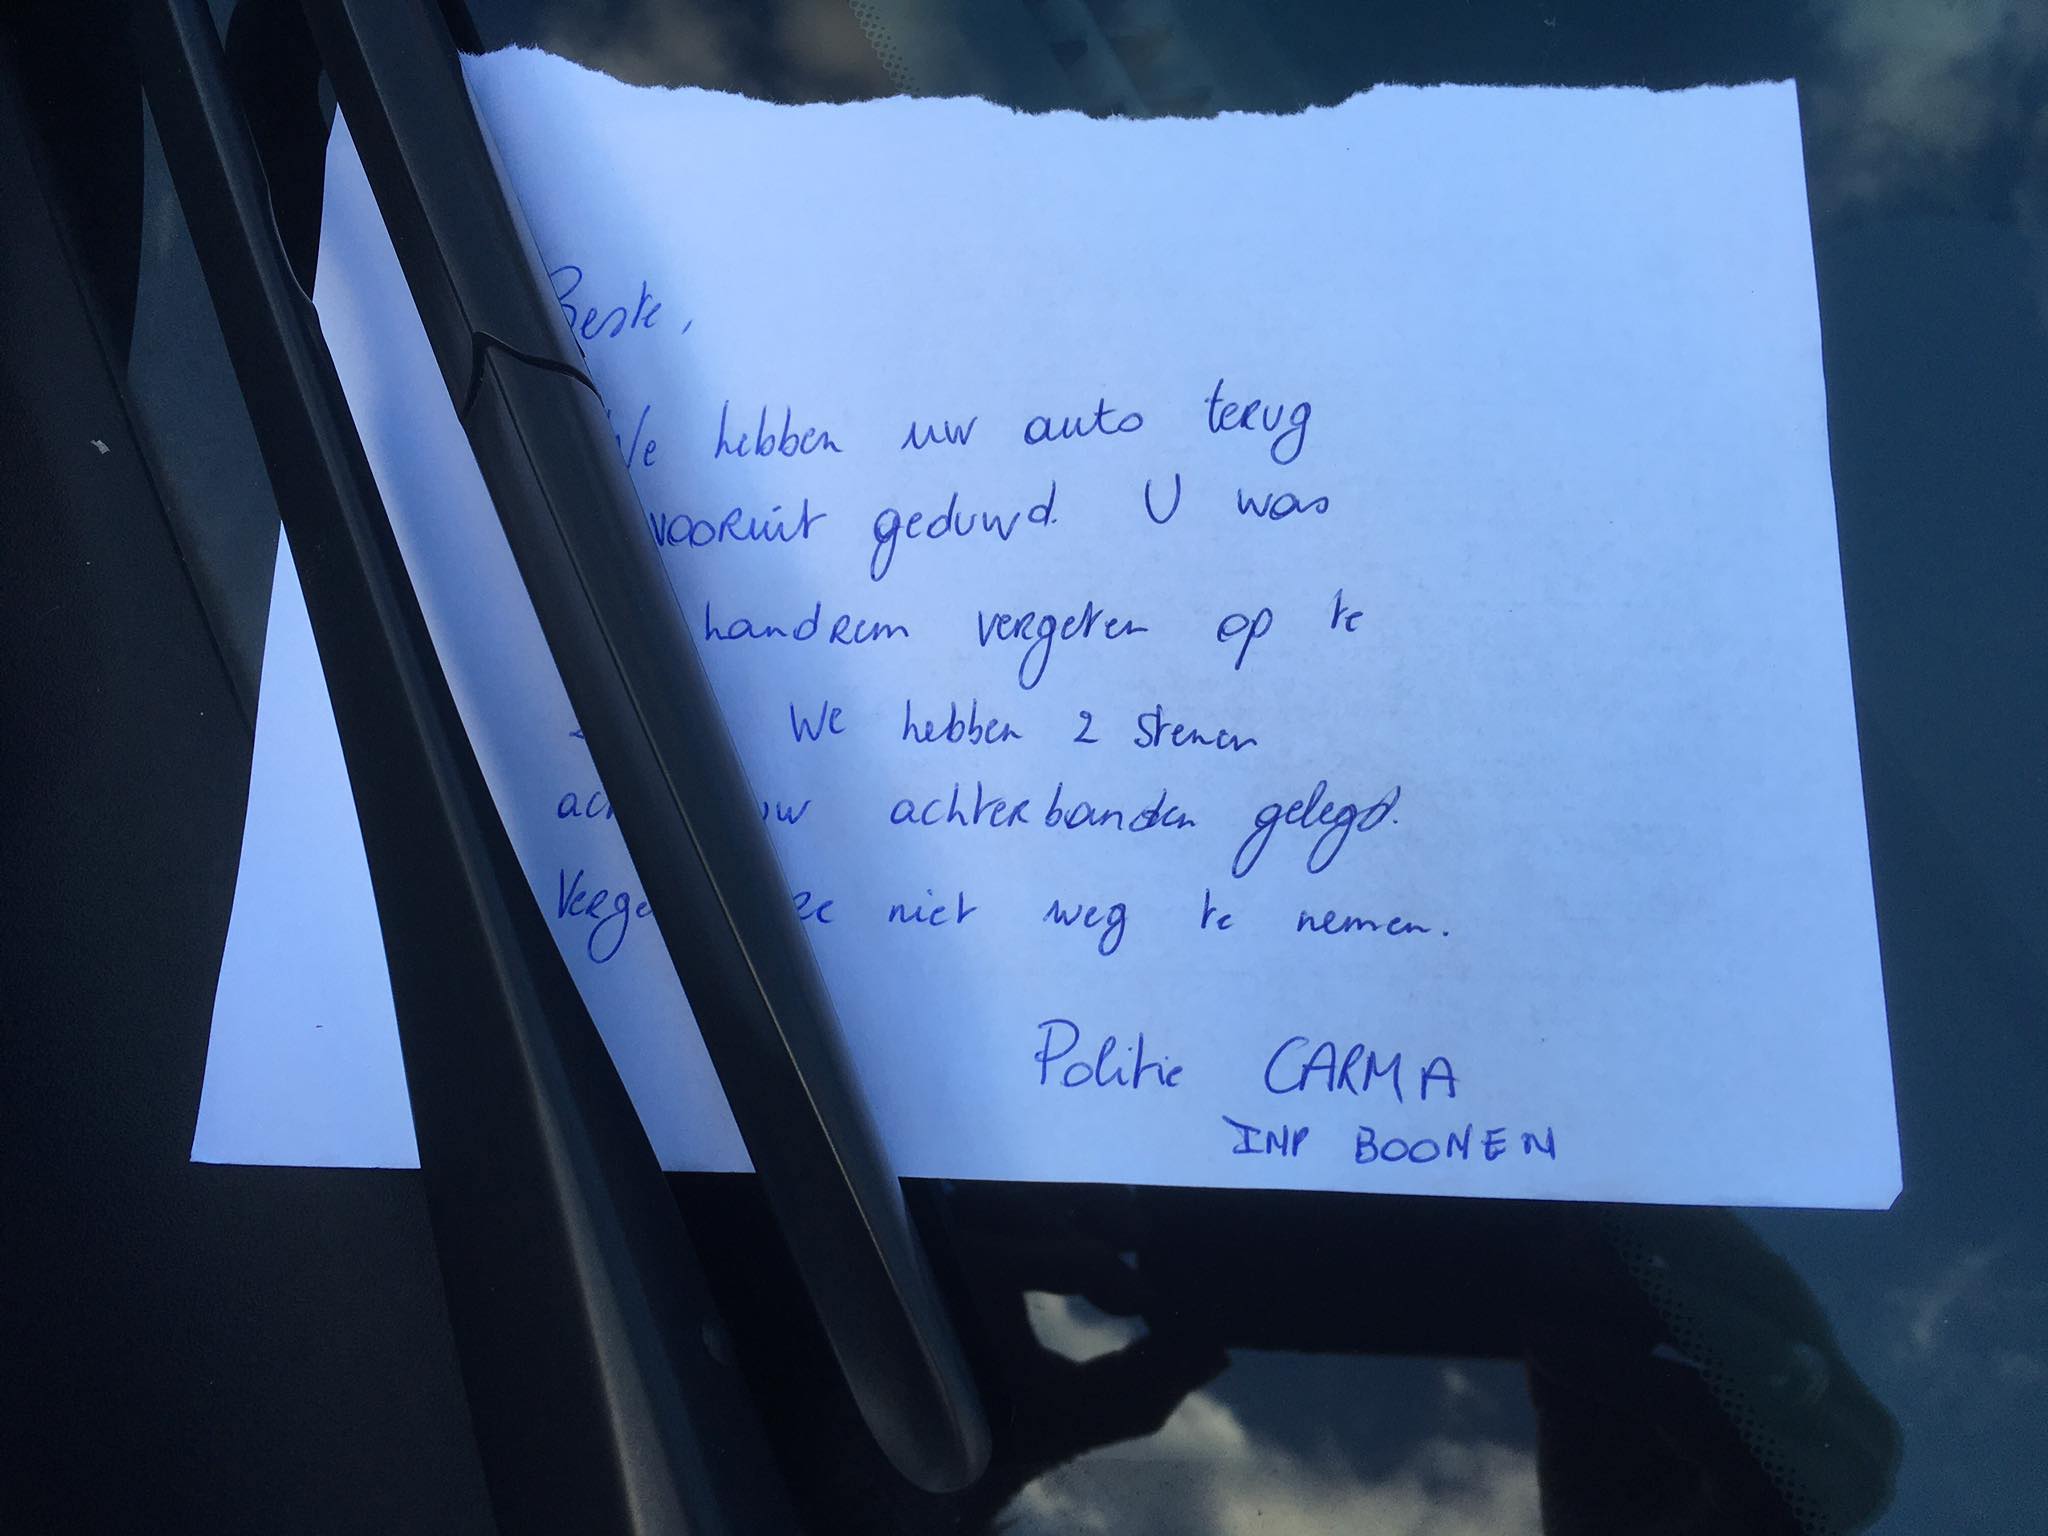 Beste,
We hebben uw auto terug
vooruit geduwd. U was
handrem vergeten op te
We hebben 2 stenen
uw achterbanden gelegd.
ze niet weg te nemen.
Politie CARMA
INP BOONEN